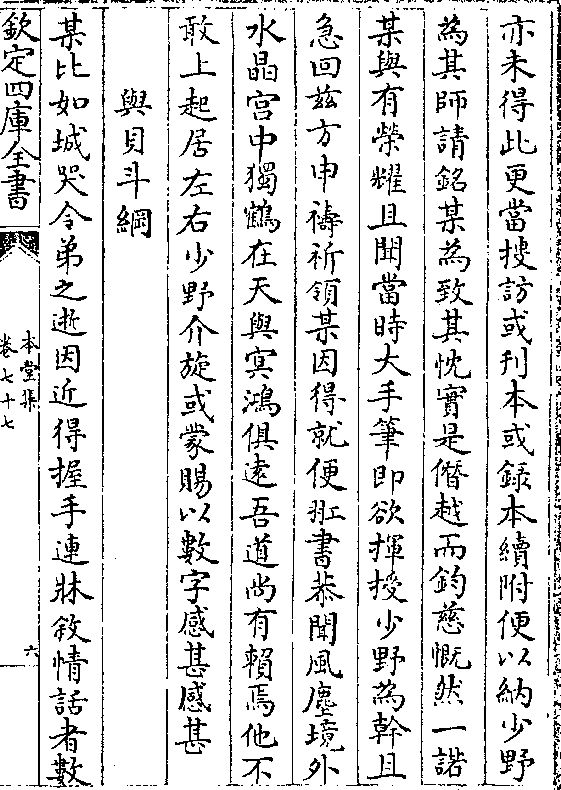 亦未得此更當搜訪或刊本或録本續附便以納少野
為其師請銘某為致其忱實是僭越而鈞慈慨然一諾
某與有榮耀且聞當時大手筆即欲揮授少野為幹且
急回兹方申禱祈領某因得就便拜書恭聞風塵境外
水晶宫中獨鶴在天與冥鴻俱逺吾道尚有賴焉他不
敢上起居左右少野介旋或蒙賜以數字感甚感甚
與貝斗綱
某比如城哭令弟之逝因近得握手連牀敘情話者數
欽定四庫全書
本堂集
卷七十七
六